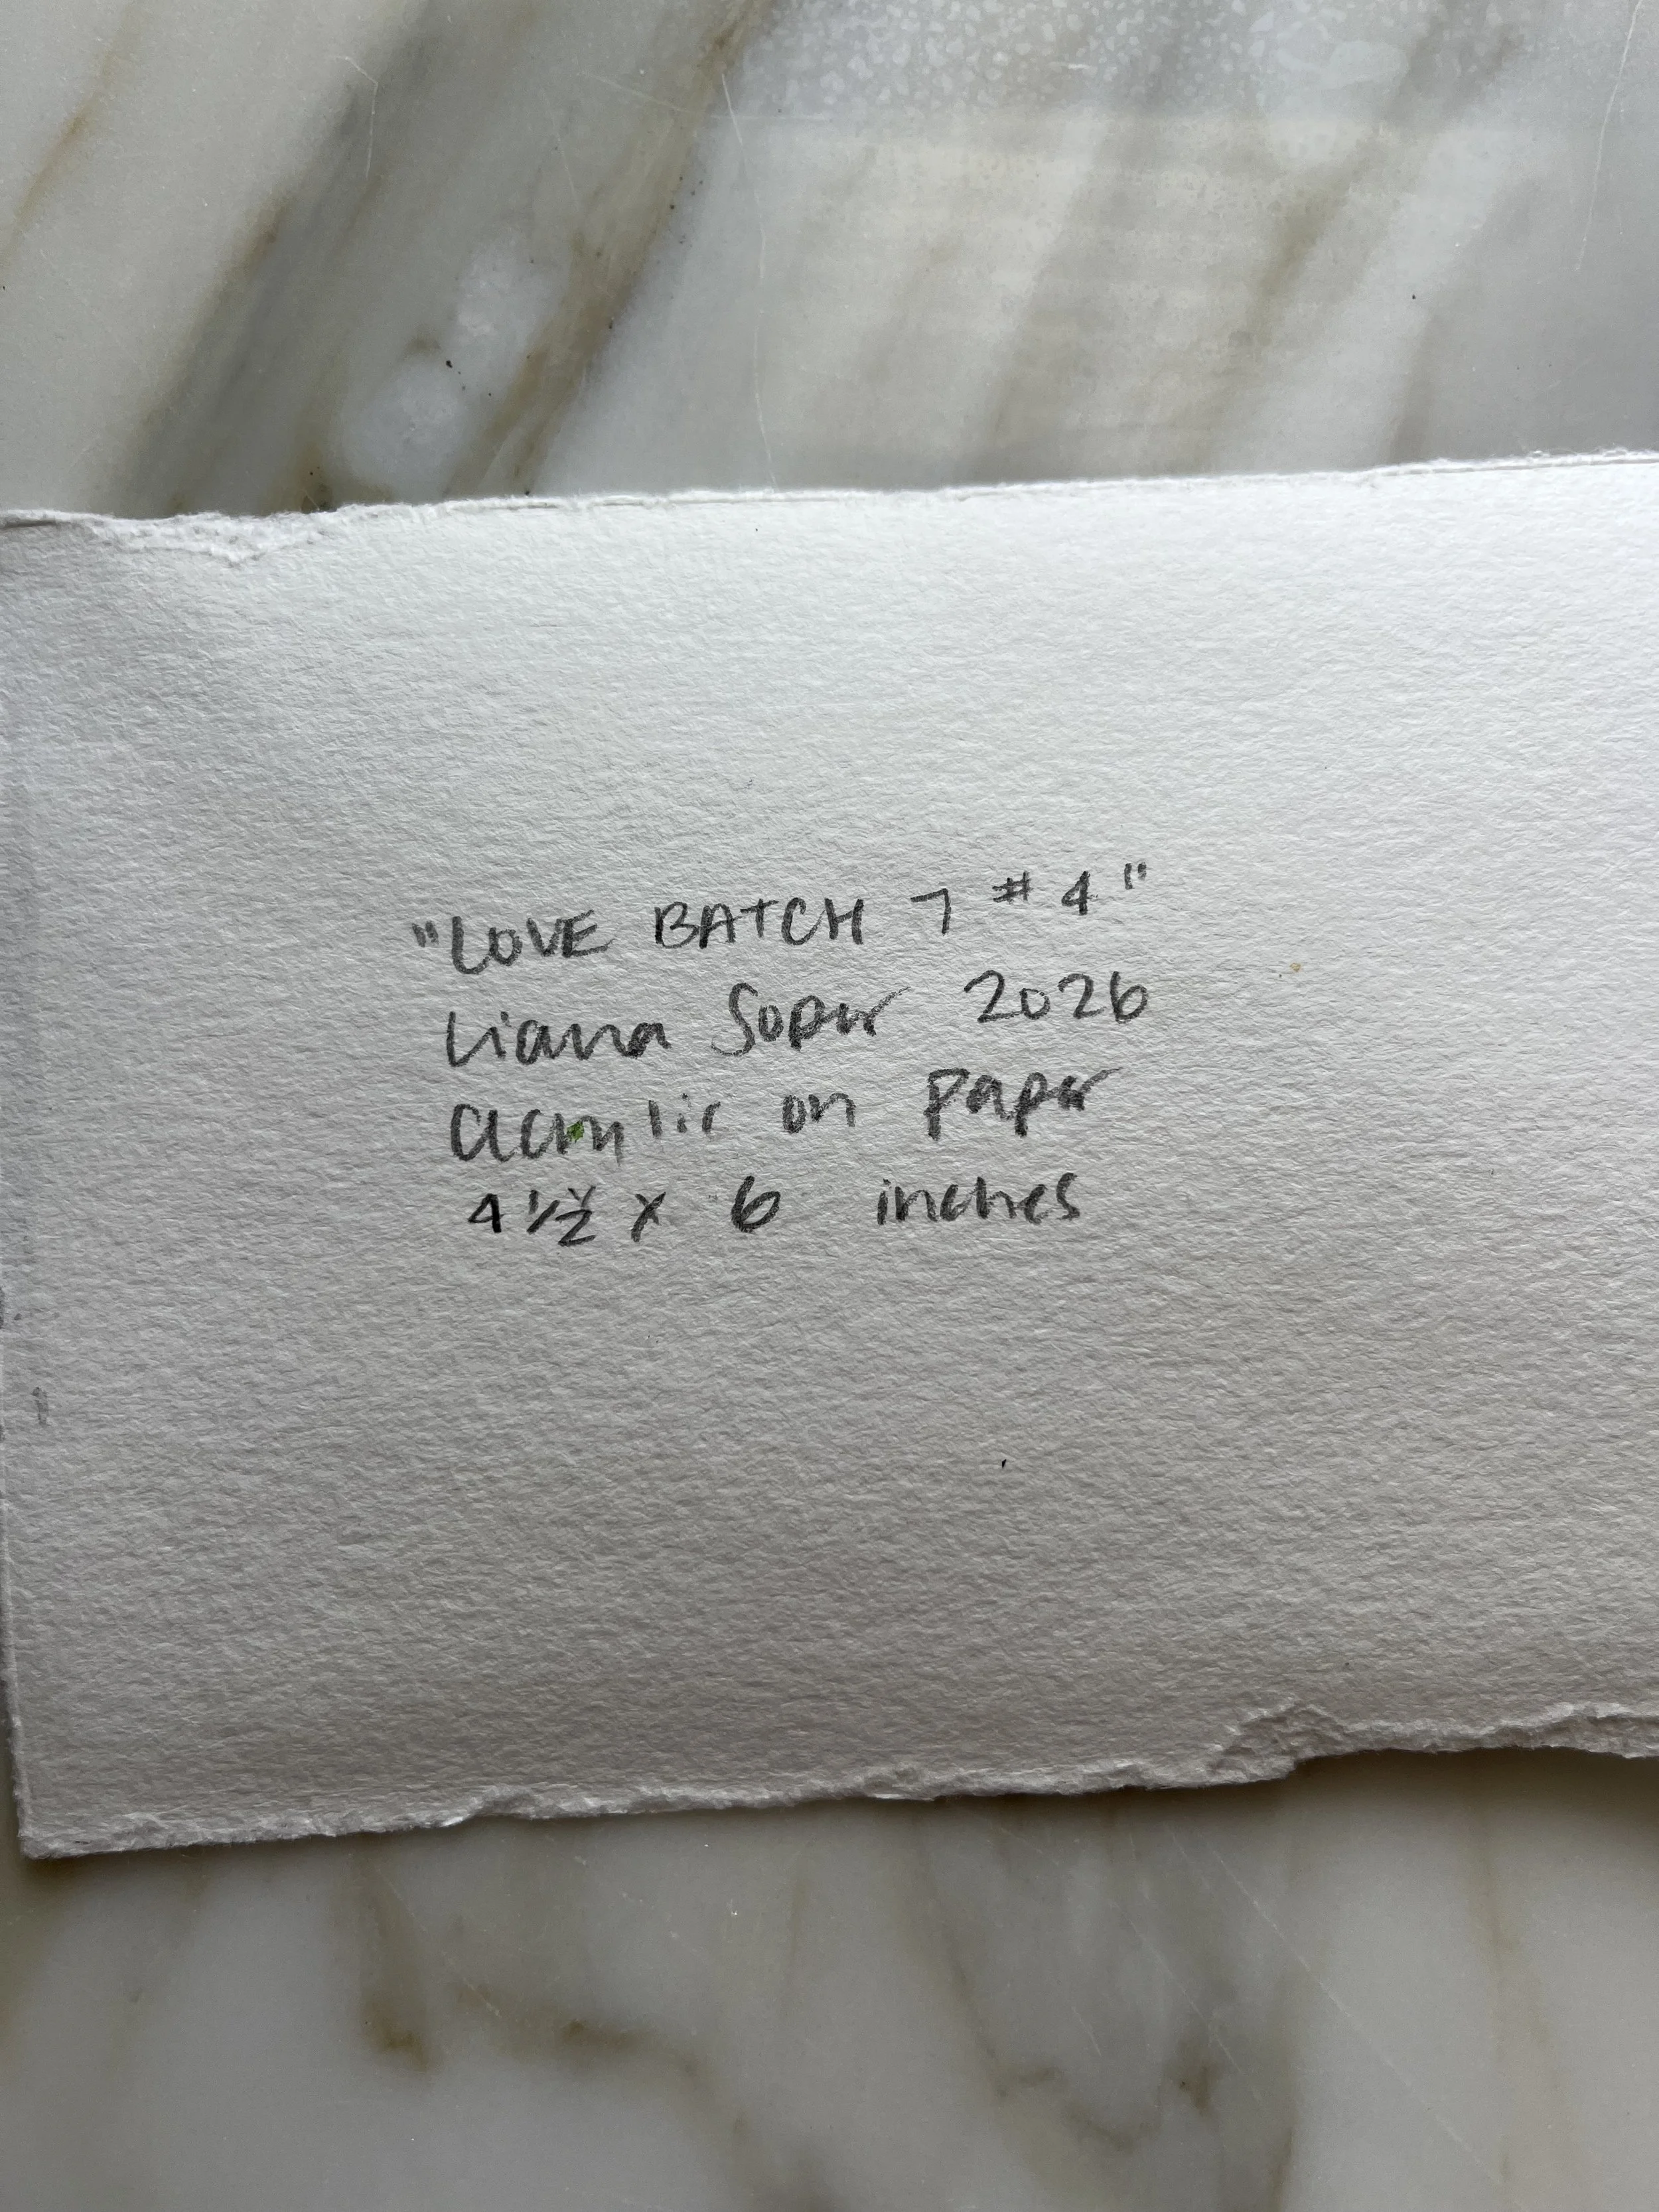 "LOVE BATCH 7 #4"
Liana Soper 2026
acrylic on paper
4 1/2 x 6 inches